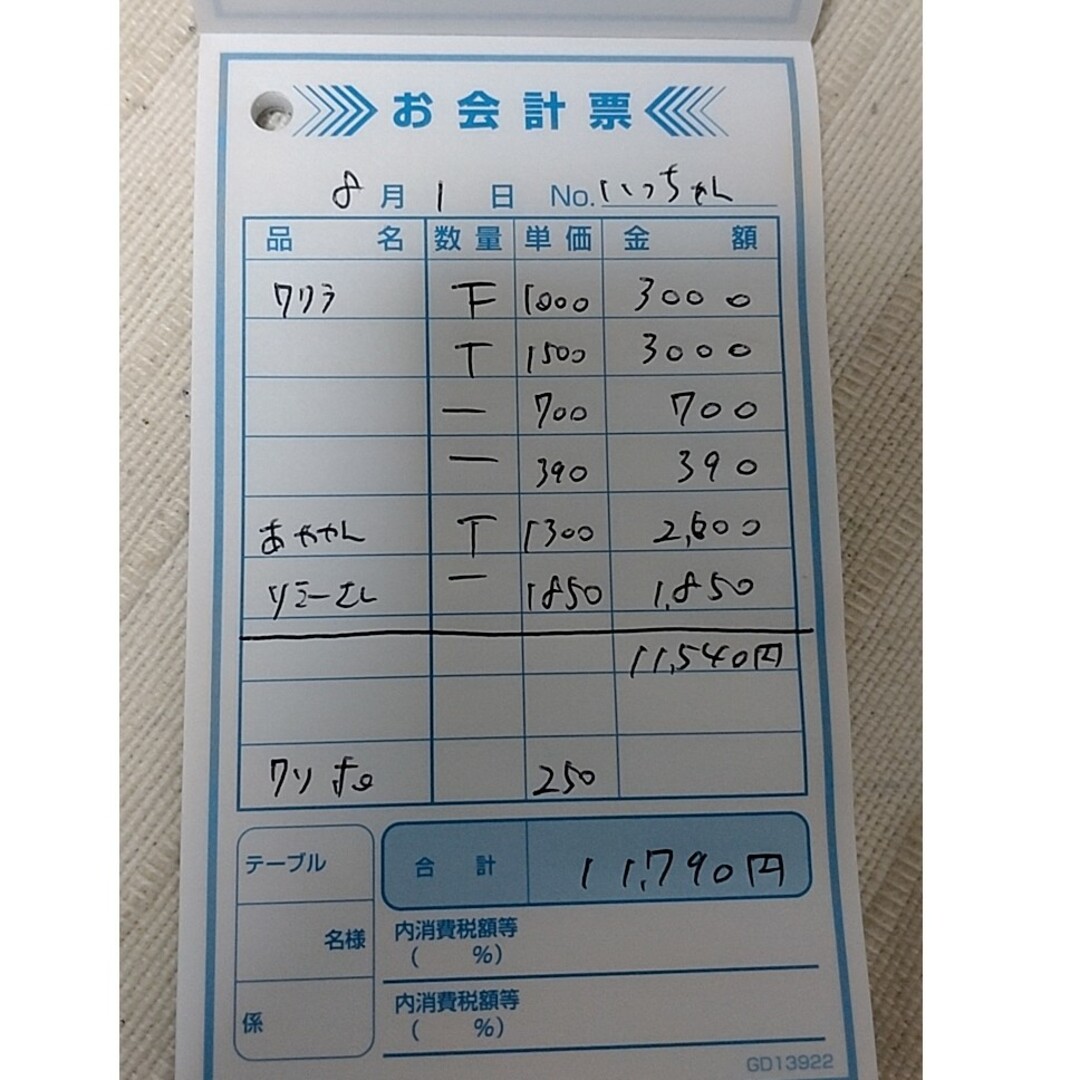 お会計票
8月1日 No.いっちゃん
品名 数量 単価 金額
クリラ 下 1000 3000
T 1500 3000
一 700 700
一 390 390
あややん T 1300 2,600
一 1850 1,850
11,540円
クリポ 250
テーブル 合計 11,790円
名様 内消費税額等
( %)
係 内消費税額等
( %)
GD13922